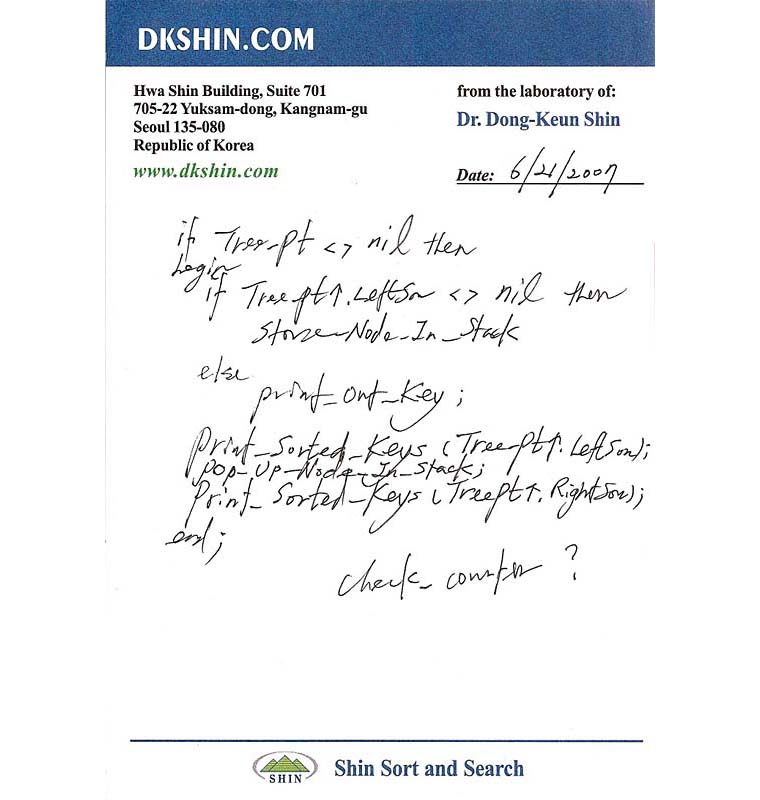 DKSHIN.COM
Hwa Shin Building, Suite 701
705-22 Yuksam-dong, Kangnam-gu
Seoul 135-080
Republic of Korea
www.dkshin.com
from the laboratory of:
Dr. Dong-Keun Shin
Date: 6/21/2007
if Tree-pt <> nil then
begin
if Treept↑.LeftSon <> nil then
Store-Node-In_Stack
else
print_out_key;
Print_Sorted_Keys (Tree-Pt↑.LeftSon);
POP-UP-Node-In_Stack;
Print_Sorted-Keys (TreePt↑.RightSon);
end;
check_counter ?
SHIN
Shin Sort and Search